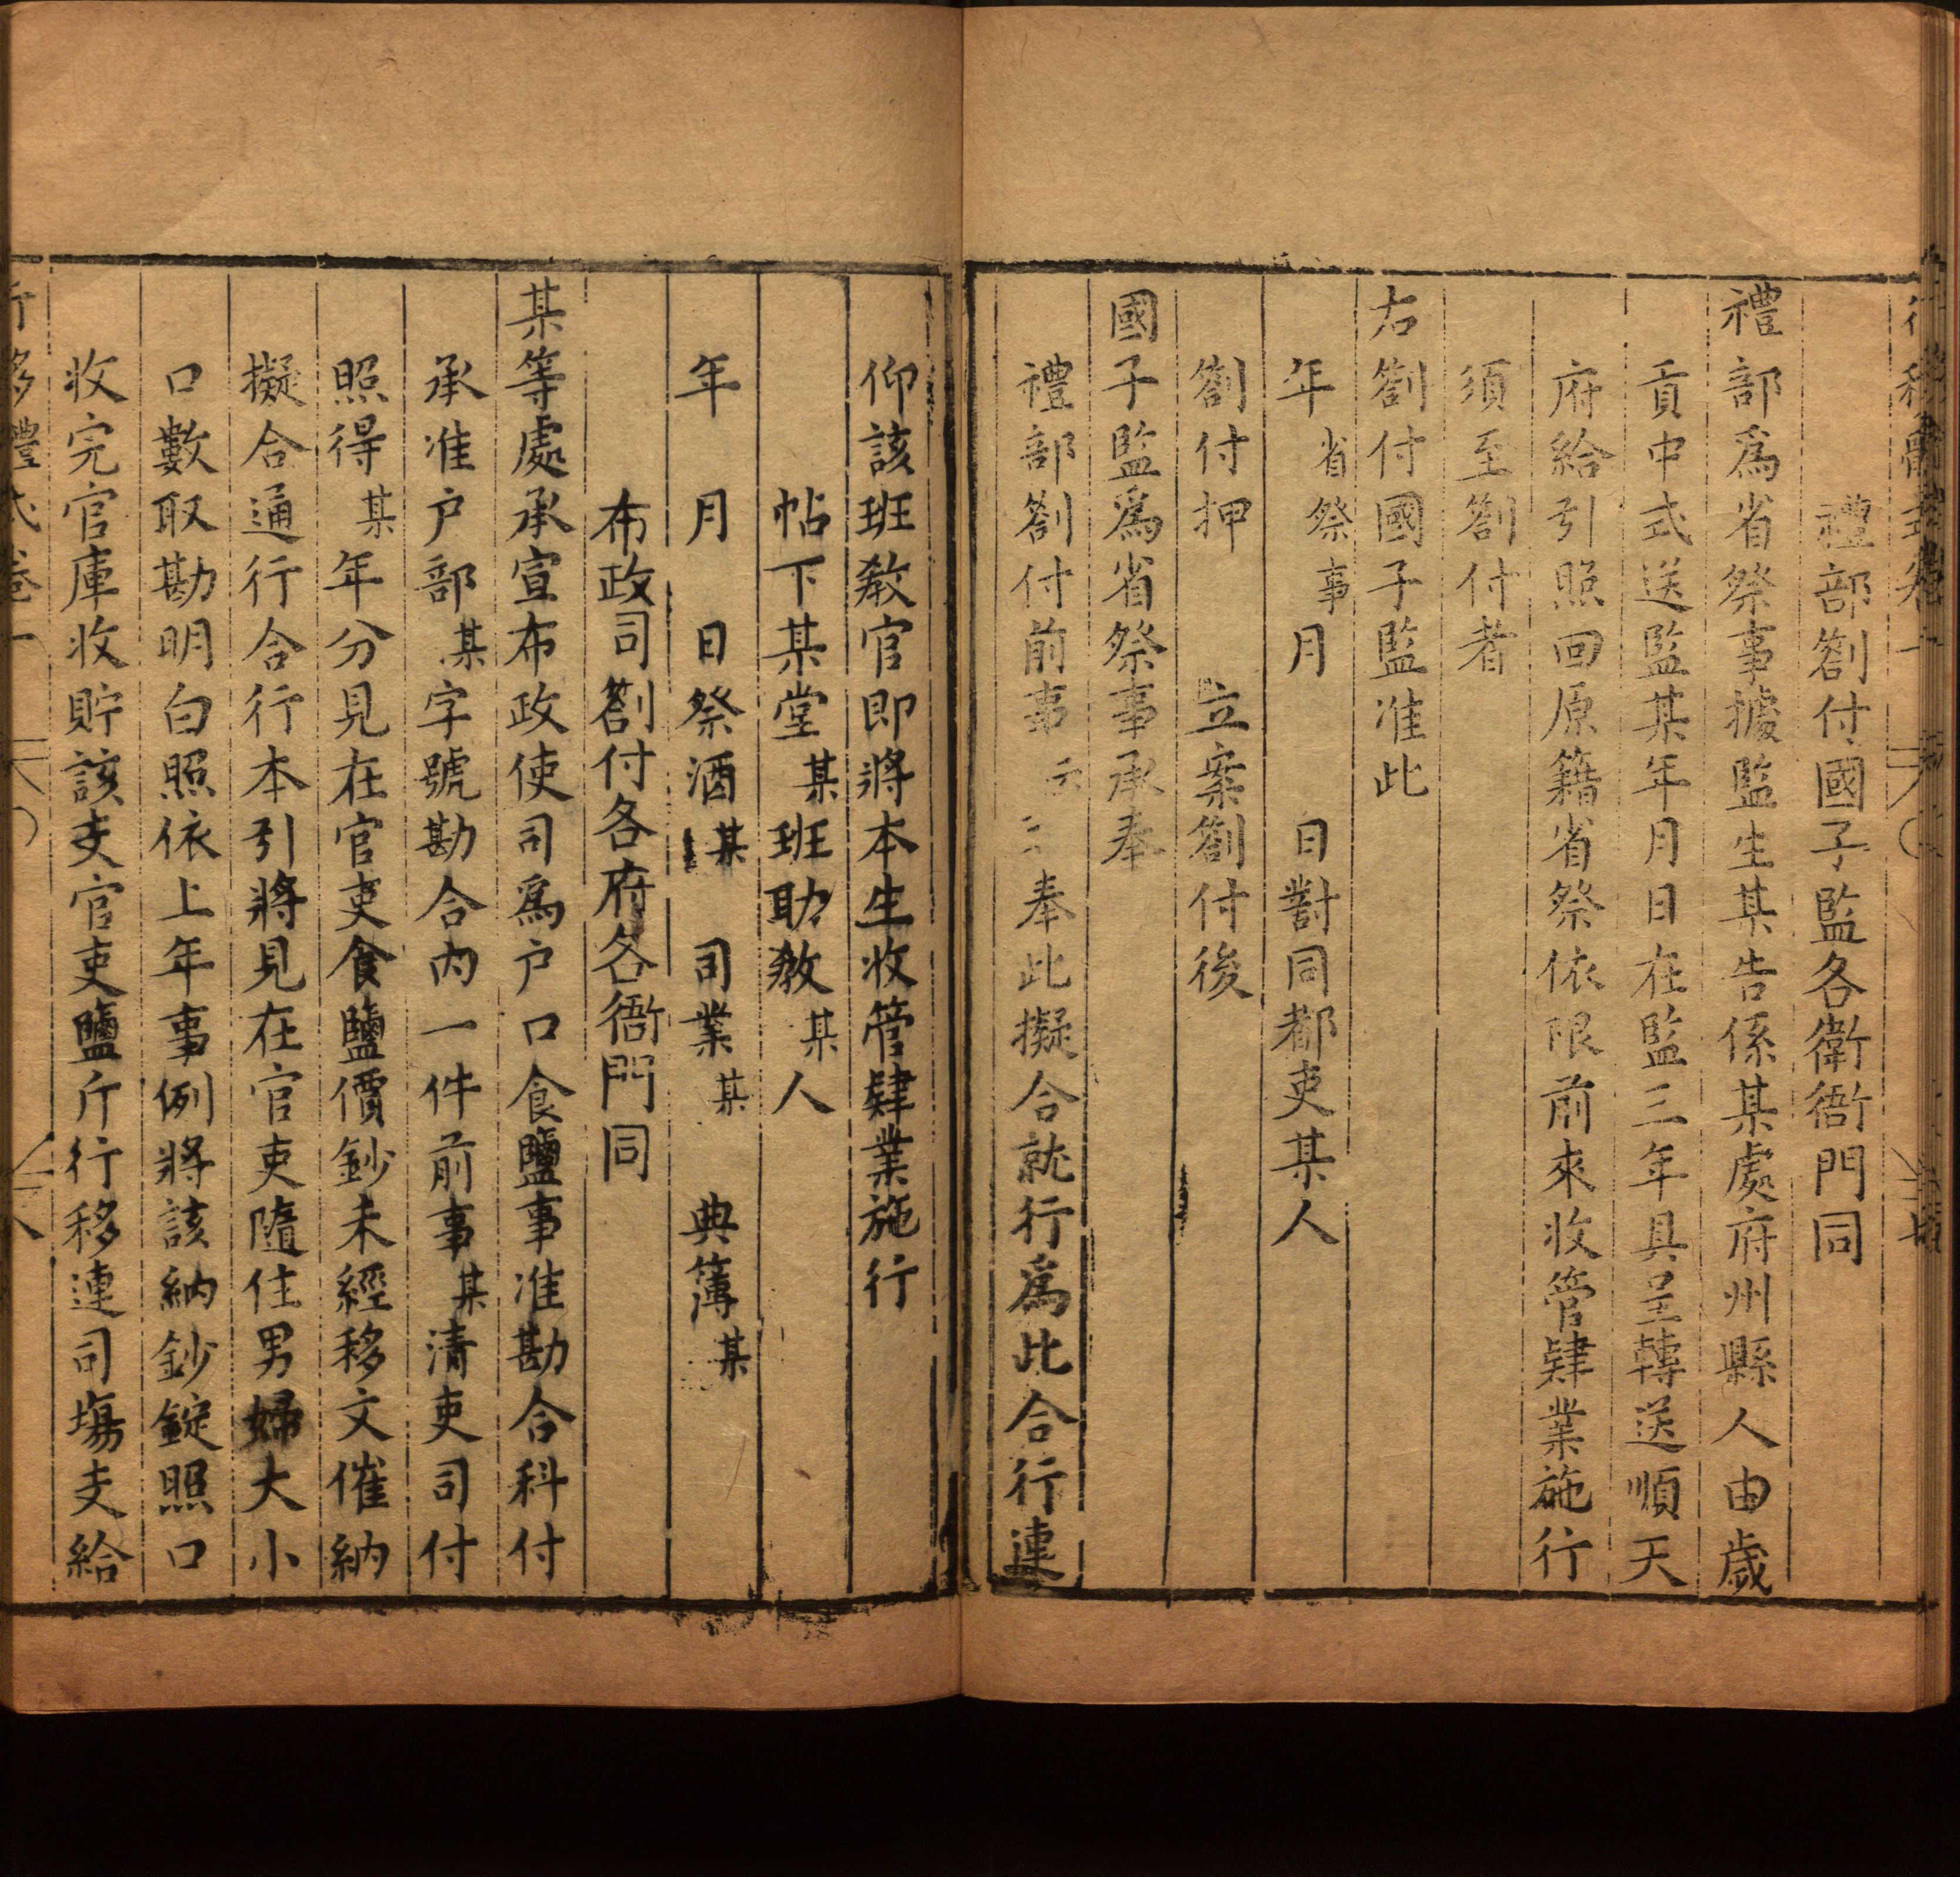 禮部劄付國子監各衛衙門同
禮部爲省祭事據監生某告係某處府州縣人由歲
貢中式送監某年月日在監三年具呈轉送順天
府給引照回原籍省祭依限前來收管肄業施行
須至劄付者
右劄付國子監准此
年 省祭事 月 日對同都吏某人
劄付押 立案劄付後
國子監爲省祭事承奉
禮部劄付前事云云奉此擬合就行爲此合行連
仰該班教官即將本生收管肄業施行
帖下某堂某班助教某人
年 月 日祭酒某 司業某 典簿某
布政司劄付各府各衙門同
某等處承宣布政使司爲戶口食鹽事准勘合科付
承准戶部某字號勘合內一件前事某清吏司付
照得某年分見在官吏食鹽價鈔未經移文催納
擬合通行合行本引將見在官吏隨住男婦大小
口數取勘明白照依上年事例將該納鈔錠照口
收完官庫收貯該支官吏鹽斤行移連司塲支給
行移體式卷一